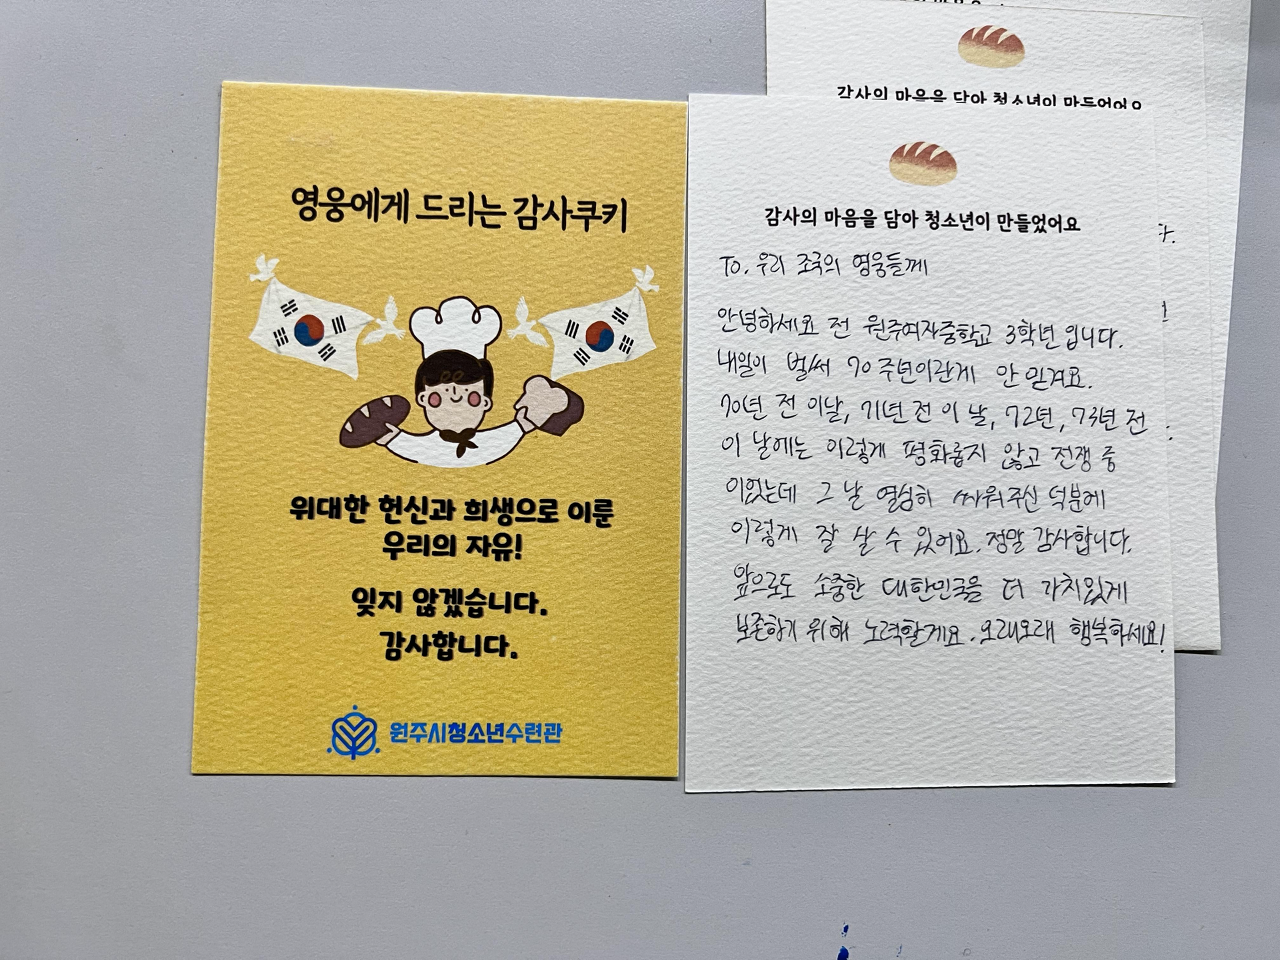 영웅에게 드리는 감사쿠키
위대한 헌신과 희생으로 이룬
우리의 자유!
잊지 않겠습니다.
감사합니다.
원주시청소년수련관
감사의 마음을 담아 청소년이 만들었어요
감사의 마음을 담아 청소년이 만들었어요
To. 우리 조국의 영웅들께
안녕하세요 전 원주여자중학교 3학년입니다.
내일이 벌써 70주년이란게 안 믿겨요.
70년 전 이날, 71년 전 이 날, 72년, 73년 전
이 날에는 이렇게 평화롭지 않고 전쟁 중
이었는데 그 날 열심히 싸워주신 덕분에
이렇게 잘 살 수 있어요. 정말 감사합니다.
앞으로도 소중한 대한민국을 더 가치있게
보존하기 위해 노력할게요. 오래오래 행복하세요!